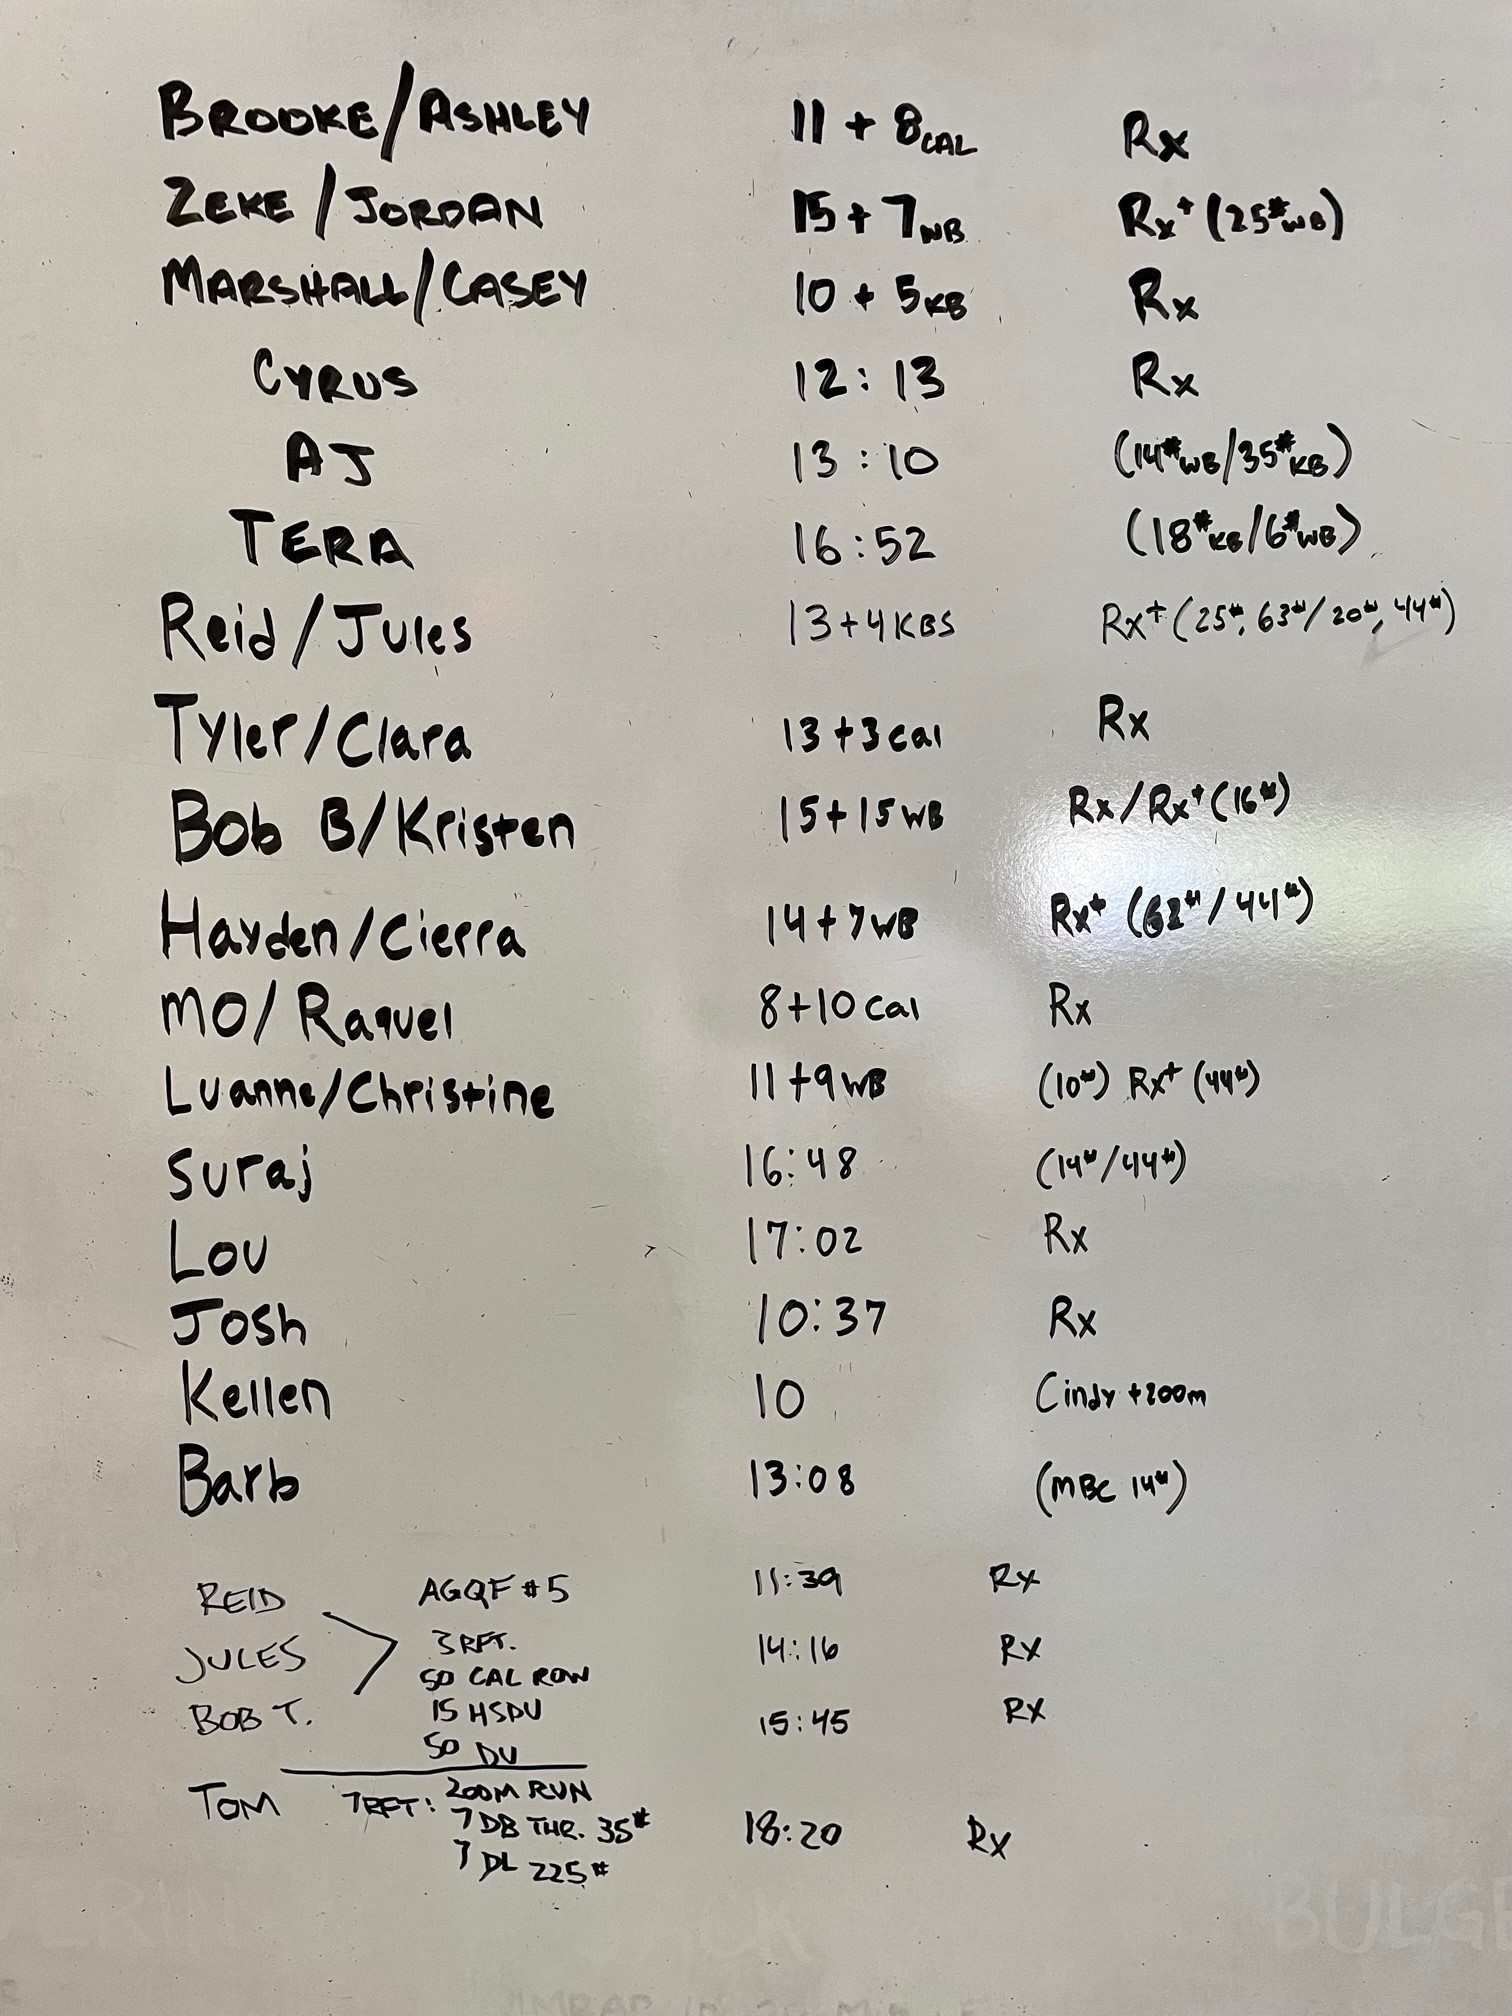 BROOKE/ASHLEY 11 + 8 CAL Rx
ZEKE / JORDAN 15 + 7 WB Rx+ (25# WB)
MARSHALL/CASEY 10 + 5 KB Rx
CYRUS 12:13 Rx
AJ 13:10 (14# WB/35# KB)
TERA 16:52 (18# KB/6# WB)
Reid/Jules 13+4 KBS Rx+ (25#, 63#/20#, 44#)
Tyler/Clara 13+3 cal Rx
Bob B/Kristen 15+15 WB Rx/Rx+ (16#)
Hayden/Cierra 14+7 WB Rx+ (62#/44#)
MO/Raquel 8+10 Cal Rx
Luanne/Christine 11+9 WB (10#) Rx+ (44#)
Suraj 16:48 (14#/44#)
Lou 17:02 Rx
Josh 10:37 Rx
Kellen 10 Cindy +200m
Barb 13:08 (MBC 14#)
REID AGQF #5 11:39 Rx
JULES 3 RFT. 14:16 Rx
50 CAL ROW
BOB T. 15 HSPU 15:45 Rx
50 DU
TOM 7RFT: 200M RUN
7 DB THR. 35# 18:20 Rx
7 DL 225#
BULGE